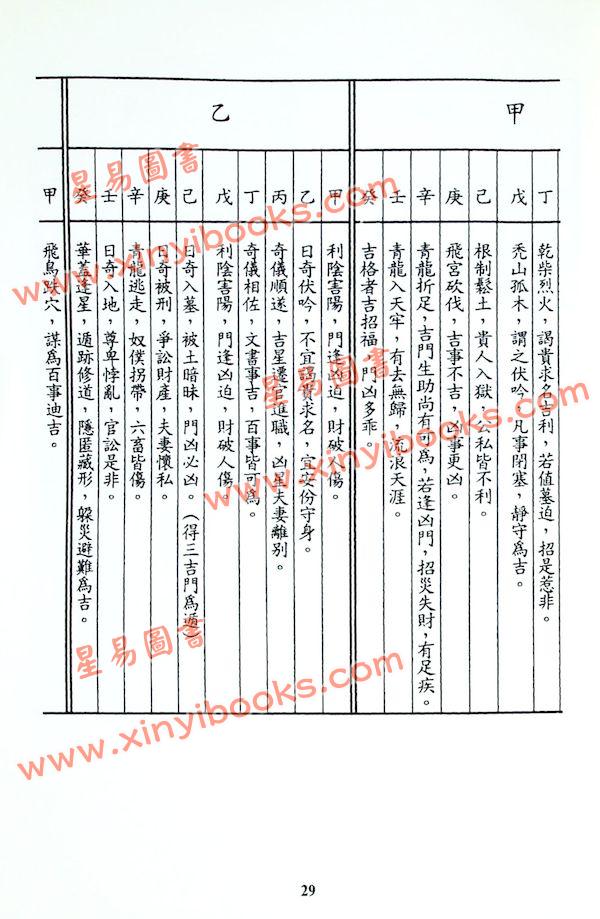 甲
丁 乾柴烈火，謁貴求名吉利，若值墓迫，招是惹非。
戊 禿山孤木，謂之伏吟，凡事閉塞，靜守爲吉。
己 根制鬆土，貴人入獄，公私皆不利。
庚 飛宮砍伐，吉事不吉，凶事更凶。
辛 青龍折足，吉門生助尚有可爲，若逢凶門，招災失財，有足疾。
壬 青龍入天牢，有去無歸，流浪天涯。
癸 吉格者吉招福，門凶多乖。
乙
甲 利陰害陽，門逢凶迫，財破人傷。
乙 日奇伏吟，不宜謁貴求名，宜安份守身。
丙 奇儀順遂，吉星遷官進職，凶星夫妻離別。
丁 奇儀相佐，文書事吉，百事皆可爲。
戊 利陰害陽，門逢凶迫，財破人傷。
己 日奇入墓，被土暗昧，門凶必凶。(得三吉門爲遁)
庚 日奇被刑，爭訟財產，夫妻懷私。
辛 青龍逃走，奴僕拐帶，六畜皆傷。
壬 日奇入地，尊卑悖亂，官訟是非。
癸 華蓋逢星，遁跡修道，隱匿藏形，躲災避難爲吉。
甲 飛鳥跌穴，謀爲百事迪吉。
星易圖書
www.xinyibooks.com
星易圖書
www.xinyibooks.com
星易圖書
www.xinyibooks.com
29